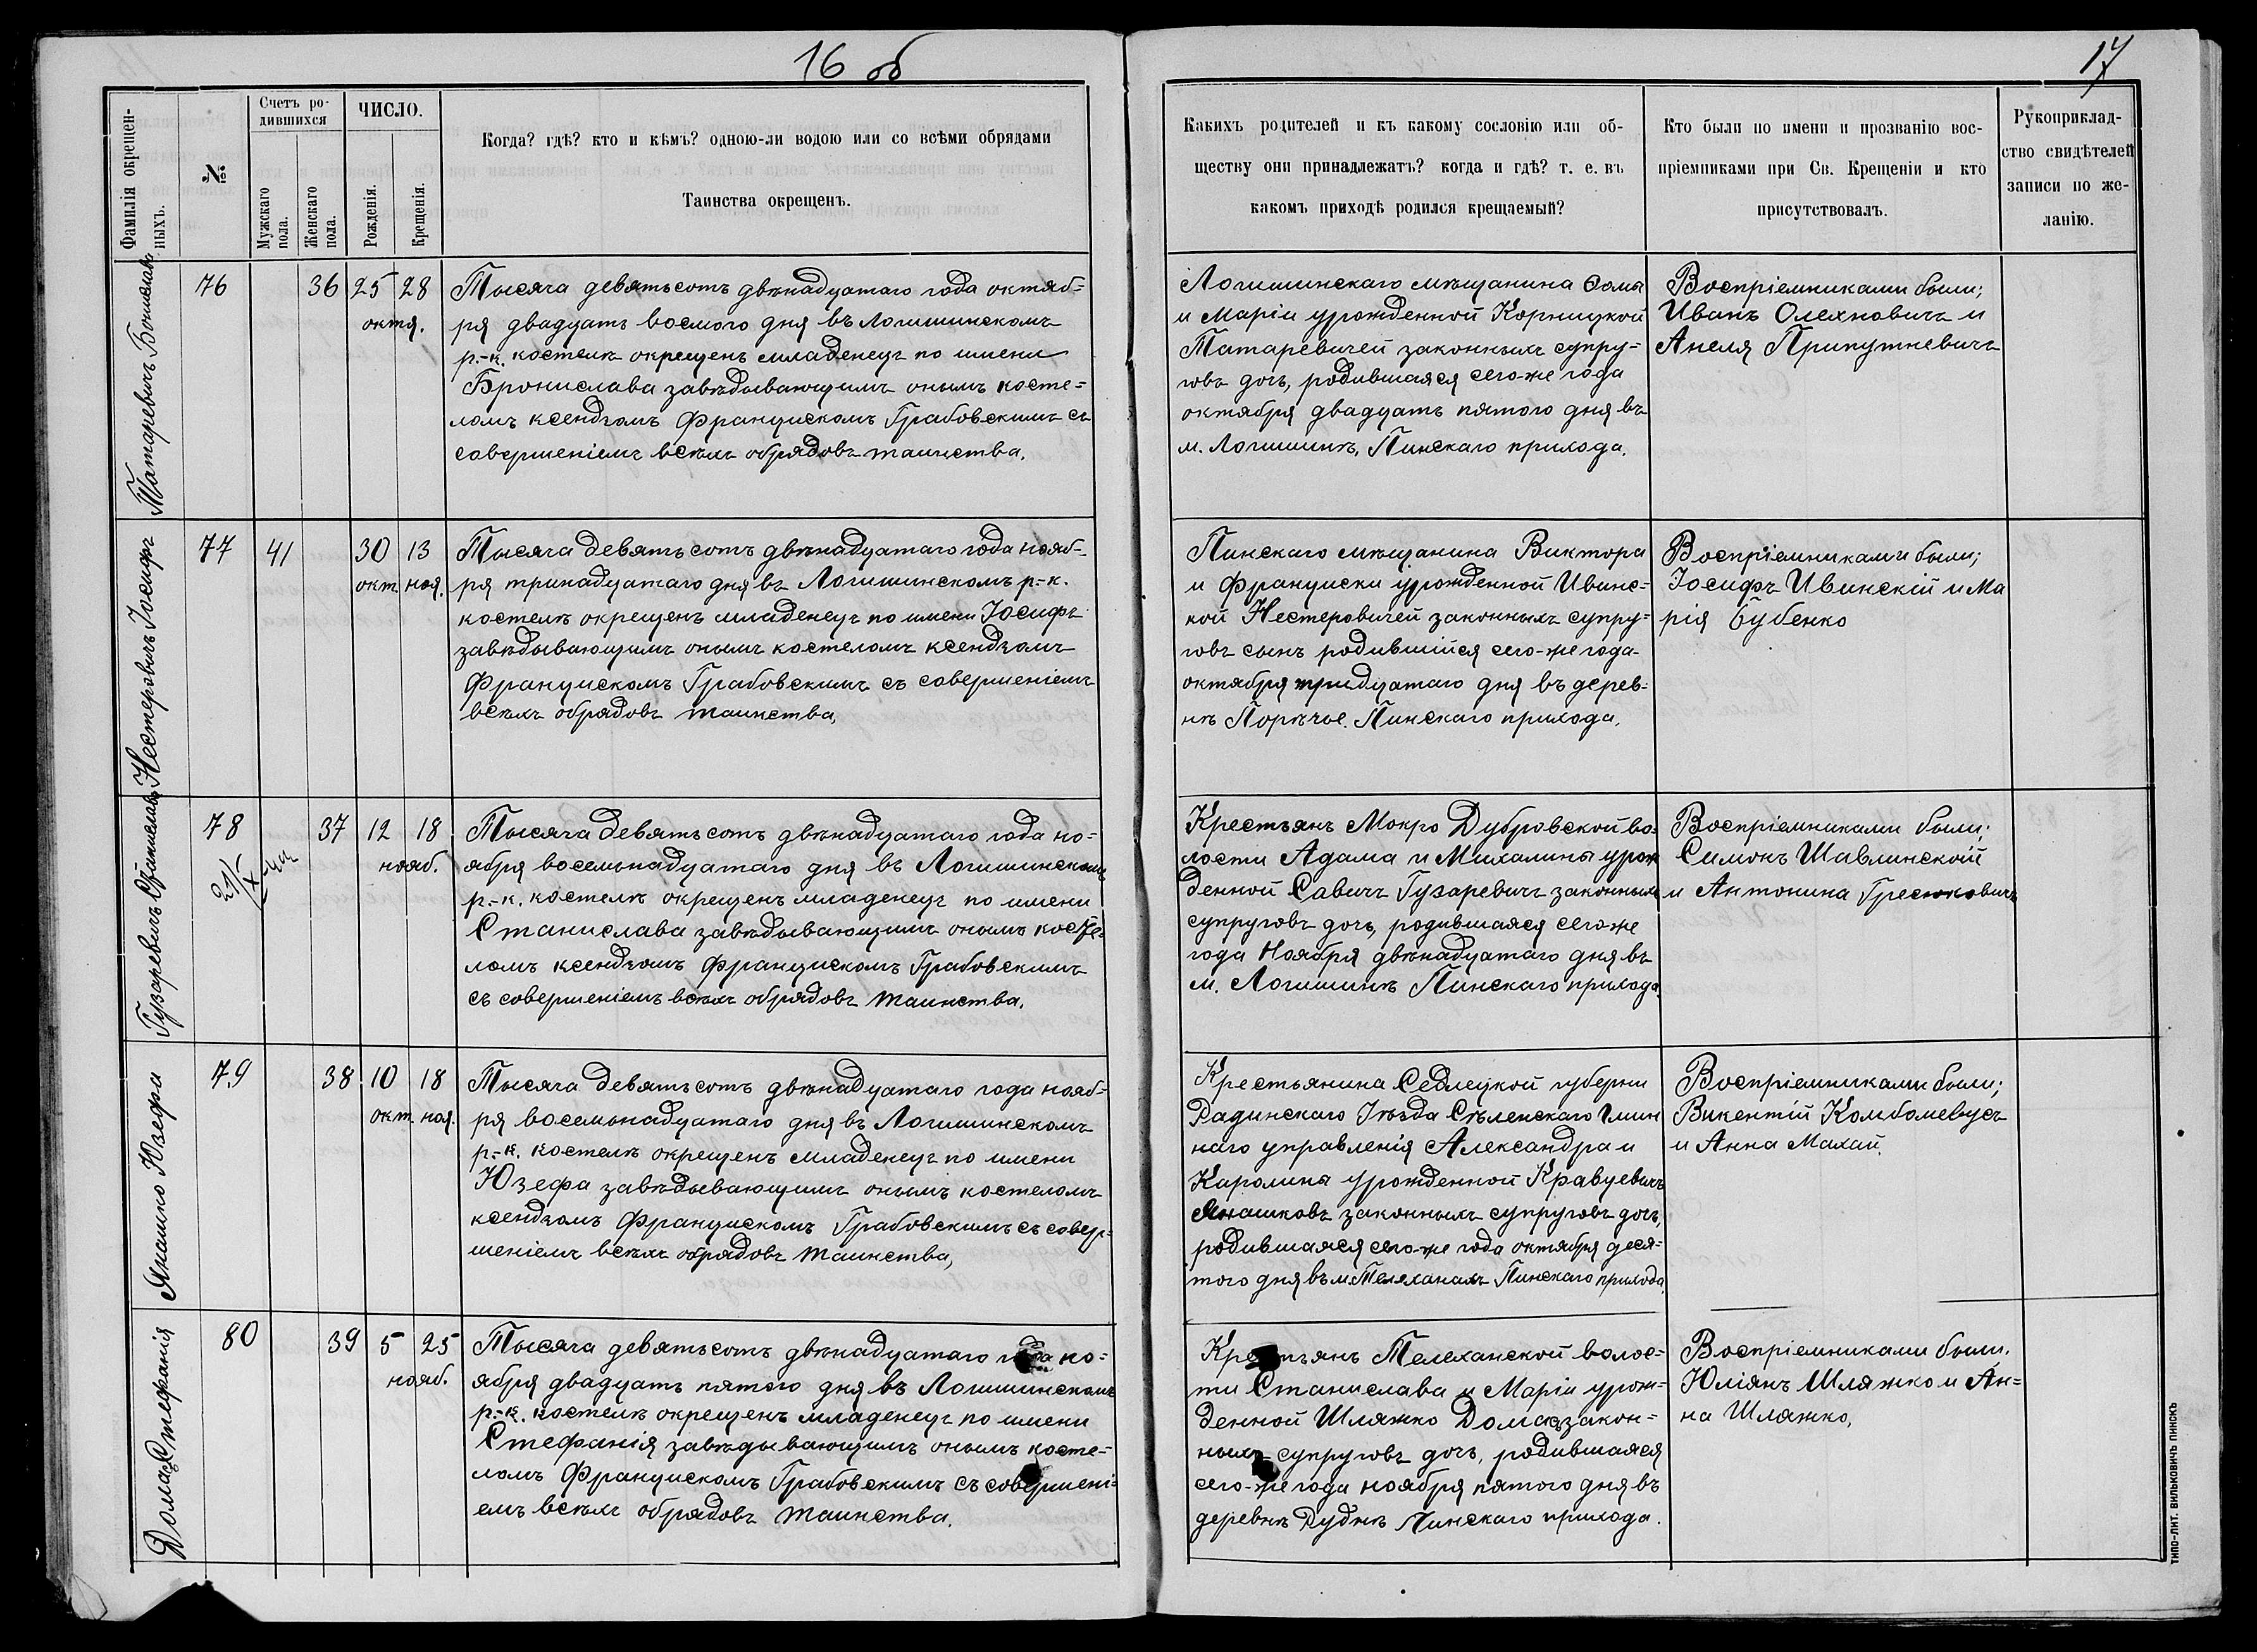 16 об
17
Фамилія окрещен-
ныхъ.
№
Счетъ ро-
дившихся
Мужскаго
пола.
Женскаго
пола.
ЧИСЛО.
Рожденія.
Крещенія.
Когда? гдѣ? кто и кѣмъ? одною-ли водою или со всѣми обрядами
Таинства окрещенъ.
Какихъ родителей и къ какому сословію или об-
ществу они принадлежатъ? когда и гдѣ? т. е. въ
какомъ приходѣ родился крещаемый?
Кто были по имени и прозванію вос-
пріемниками при Св. Крещеніи и кто
присутствовалъ.
Рукоприклад-
ство свидѣтелей
записи по же-
ланію.
Татаревичъ
76
36
25 28
октя.
Тысяча девятьсотъ двѣнадцатаго года октяб-
ря двадцать восмого дня въ Логишинскомъ
р.-к. костелѣ окрещенъ младенецъ по имени
Бронислава завѣдывающимъ онымъ косте-
ломъ ксендзомъ Францискомъ Грабовскимъ съ
совершеніемъ всѣхъ обрядовъ таинства.
Логишинскаго мѣщанина Ѳомы
и Маріи урожденной Корницкой
Татаревичей законныхъ супру-
говъ дочь, родившаяся сего-же года
октября двадцать пятого дня въ
м. Логишинѣ, Пинскаго прихода.
Воспріемниками были;
Иванъ Олехновичъ и
Анеля Припутневичъ
Нестеровичъ Іосифъ
77
41
30 13
окт. ноя.
Тысяча девятьсотъ двѣнадцатаго года нояб-
ря тринадцатаго дня въ Логишинскомъ р.-к.
костелѣ окрещенъ младенецъ по имени Іосифъ
завѣдывающимъ онымъ костеломъ ксендзомъ
Францискомъ Грабовскимъ съ совершеніемъ
всѣхъ обрядовъ таинства.
Пинскаго мѣщанина Виктора
и Франциски урожденной Ивинс-
кой Нестеровичей законныхъ супру-
говъ сынъ родившійся сего-же года
октября тридцатаго дня въ дерев-
нѣ Порѣчье. Пинскаго прихода.
Воспріемниками были;
Іосифъ Ивинскій и Ма
рія Бубенко
Гузаревичъ Станислава
78
37
12 18
нояб.
Тысяча девятьсотъ двѣнадцатаго года но-
ября восемьнадцатаго дня въ Логишинскомъ
р.-к. костелѣ окрещенъ младенецъ по имени
Станислава завѣдывающимъ онымъ косте-
ломъ ксендзомъ Францискомъ Грабовскимъ
съ совершеніемъ всѣхъ обрядовъ таинства.
Крестьянъ Мокро Дубровской во-
лости Адама и Михалины урож
денной Савичъ Гузаревичъ законныхъ
супруговъ дочь, родившаяся сегоже
года Ноября двѣнадцатаго дня въ
м. Логишинѣ Пинскаго прихода.
Воспріемниками были;
Симонъ Шавлинскій
и Антонина Гресюковичъ
Янашко Юзефа
79
38
10 18
окт. ноя.
Тысяча девятьсотъ двѣнадцатаго года нояб-
ря восемьнадцатаго дня въ Логишинскомъ
р.-к. костелѣ окрещенъ младенецъ по имени
Юзефа завѣдывающимъ онымъ костеломъ
ксендзомъ Францискомъ Грабовскимъ съ совер-
шеніемъ всѣхъ обрядовъ таинства,
Крестьянина Седлецкой губерни
Радинскаго Уѣзда Сѣленскаго Гмин
наго управленія Александра и
Каролины урожденной Кравцевичъ
Янашковъ законныхъ супруговъ дочь,
родившаяся сего-же года октября деся-
того дня въ м. Телеханахъ Пинскаго прихода.
Воспріемниками были;
Викентій
и Анна Махай.
Домась Стефанія
80
39
5 25
нояб.
Тысяча девятьсотъ двѣнадцатаго года но-
ября двадцать пятого дня въ Логишинскомъ
р.-к. костелѣ окрещенъ младенецъ по имени
Стефанія завѣдывающимъ онымъ косте-
ломъ Францискомъ Грабовскимъ съ совершені-
емъ всѣхъ обрядовъ таинства.
Крестьянъ Телеханской волос-
ти Станислава и Маріи урож-
денной Шляжко Домась закон-
ныхъ супруговъ дочь, родившаяся
сего-же года ноября пятого дня въ
деревнѣ Руднѣ Пинскаго прихода.
Воспріемниками были.
Юліянъ Шляжко и Ан-
на Шляжко,
ТИПО-ЛИТ. ВИЛЬКОВИЧЪ ПИНСКЪ